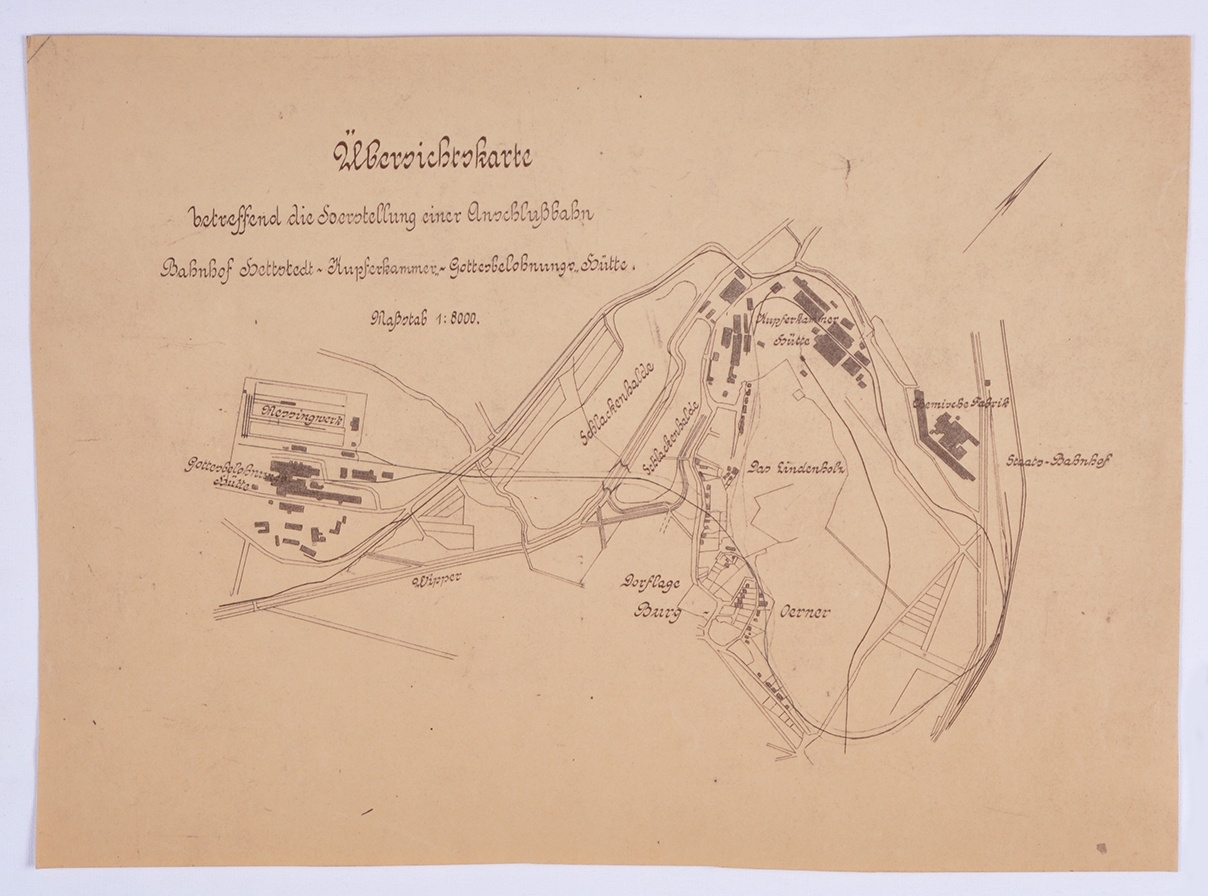 Übersichtskarte
betreffend die Herstellung einer Anschlußbahn
Bahnhof Hettstedt-„Kupferkammer“-Gottesbelohnungs„Hütte.
Maßstab 1:8000.
Kupferkammer
Hütte
Schlackenhalde
Schlackenhalde
Messingwerk
Chemische Fabrik
Gottesbelohnungs
Hütte
Das Lindenholz
Staats-Bahnhof
Wipper
Dorflage
Burg - Oerner